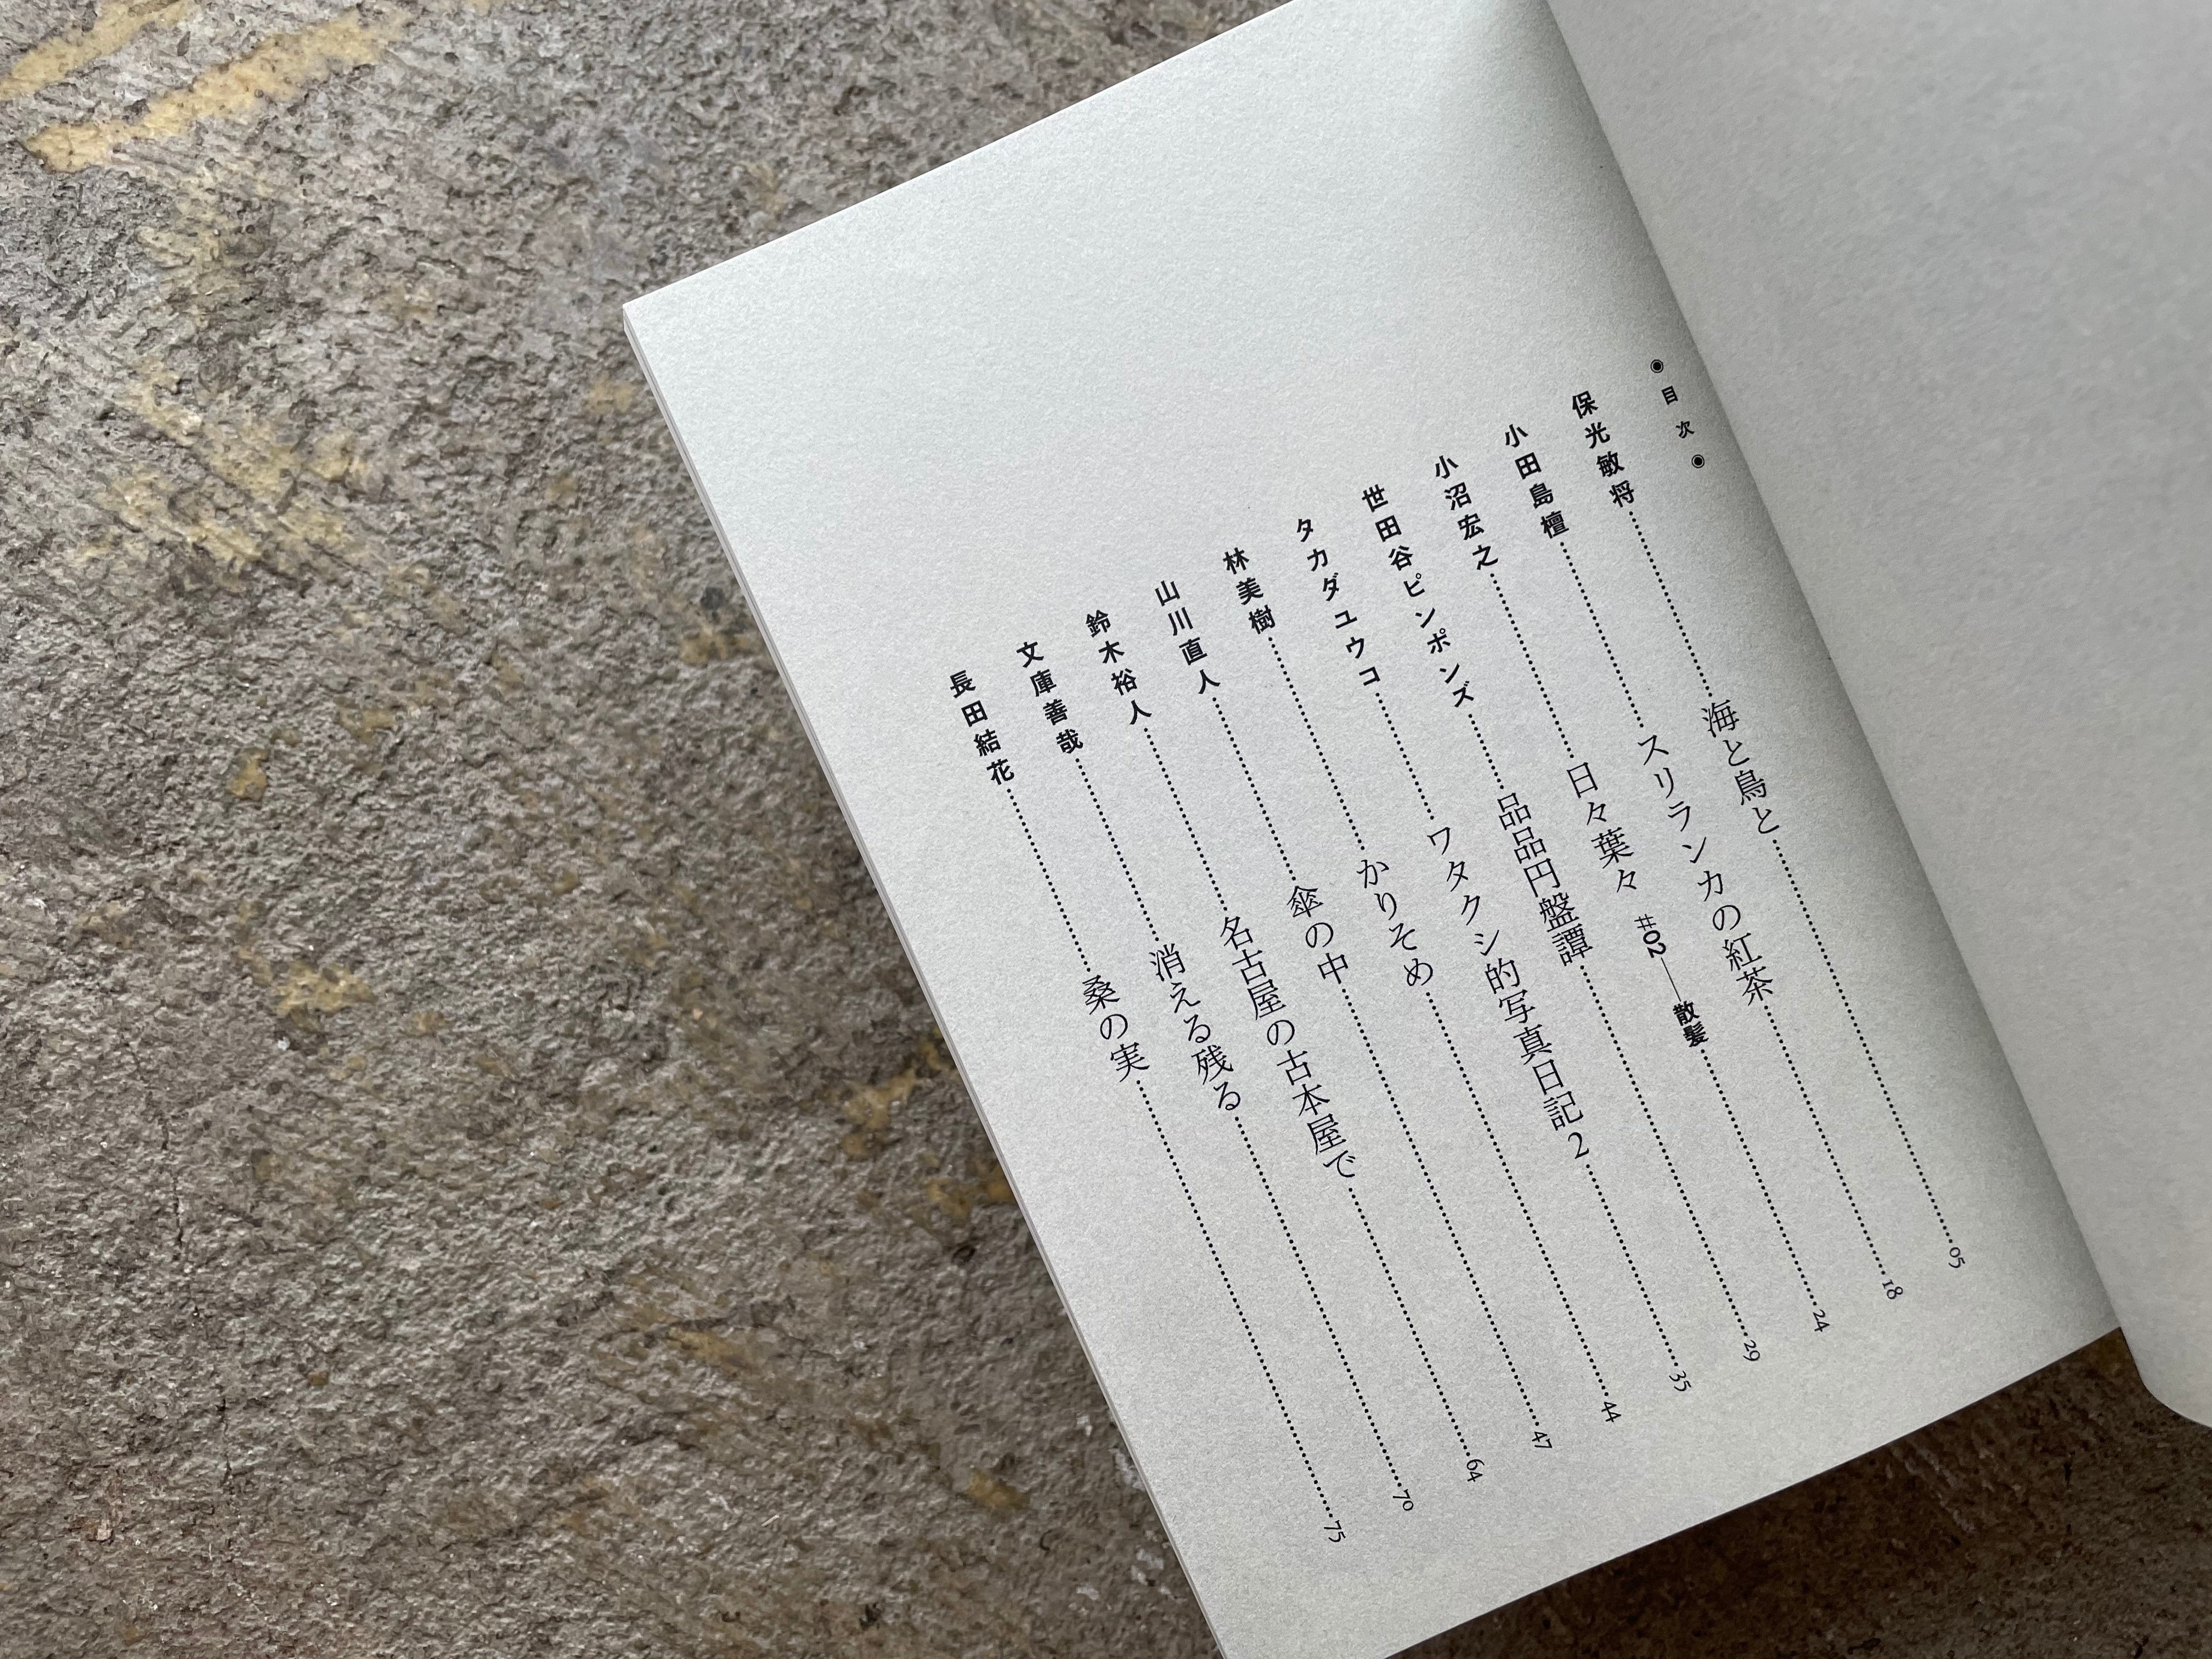 ◉目次◉
保光敏将………海と鳥と………05
小田島檀………スリランカの紅茶………18
小沼宏之………日々葉々 #02──散髪………24
世田谷ピンポンズ………品品円盤譚………29
タカダユウコ………ワタクシ的写真日記2………35
林美樹………かりそめ………44
山川直人………傘の中………47
鈴木裕人………名古屋の古本屋で………64
文庫善哉………消える残る………70
長田結花………桑の実………75